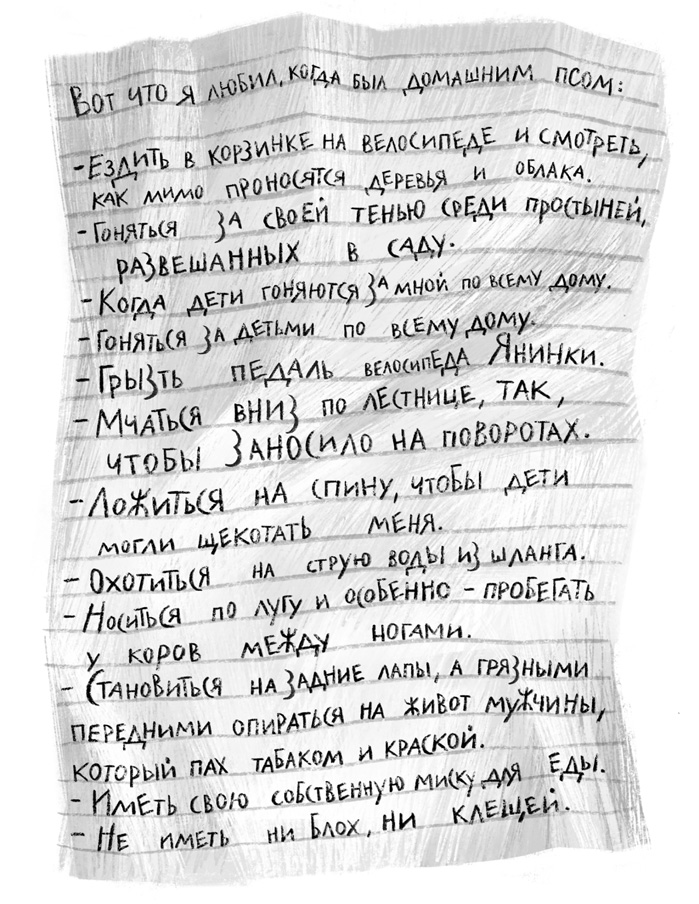 Вот что я любил, когда был домашним псом:
- Ездить в корзинке на велосипеде и смотреть,
как мимо проносятся деревья и облака.
- Гоняться за своей тенью среди простыней,
развешанных в саду.
- Когда дети гоняются за мной по всему дому.
- Гоняться за детьми по всему дому.
- Грызть педаль велосипеда Янинки.
- Мчаться вниз по лестнице, так,
чтобы заносило на поворотах.
- Ложиться на спину, чтобы дети
могли щекотать меня.
- Охотиться на струю воды из шланга.
- Носиться по лугу и особенно - пробегать
у коров между ногами.
- Становиться на задние лапы, а грязными
передними опираться на живот мужчины,
который пах табаком и краской.
- Иметь свою собственную миску для еды.
- Не иметь ни блох, ни клещей.